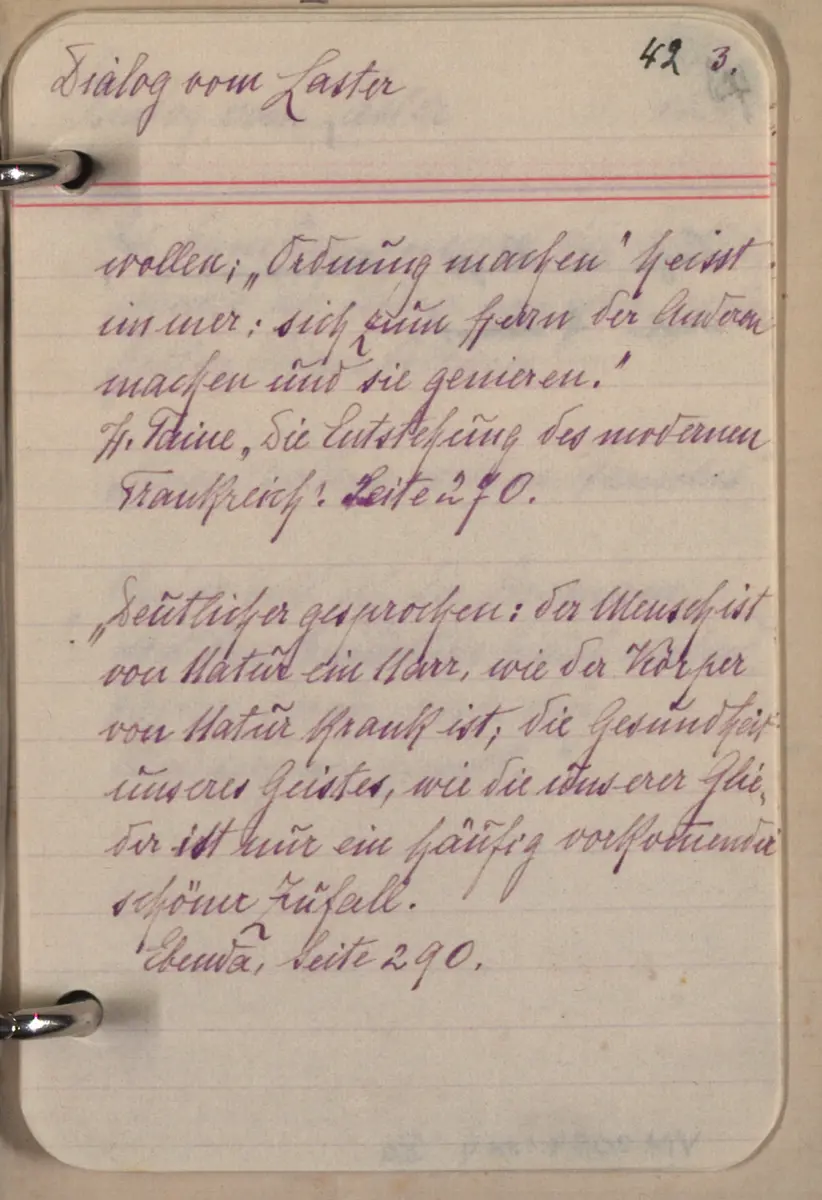 Dialog vom Laster
42 3.
wollen; „Ordnung machen" heisst
immer: sich zum Herrn der Anderen
machen und sie genieren."
H. Taine „Die Entstehung des modernen
Frankreich". Seite 270.
„Deutlicher gesprochen: der Mensch ist
von Natur ein Narr, wie der Körper
von Natur krank ist; die Gesundheit
unseres Geistes, wie die unserer Glie-
der ist nur ein häufig vorkommender
schöner Zufall.
Ebenda, Seite 290.